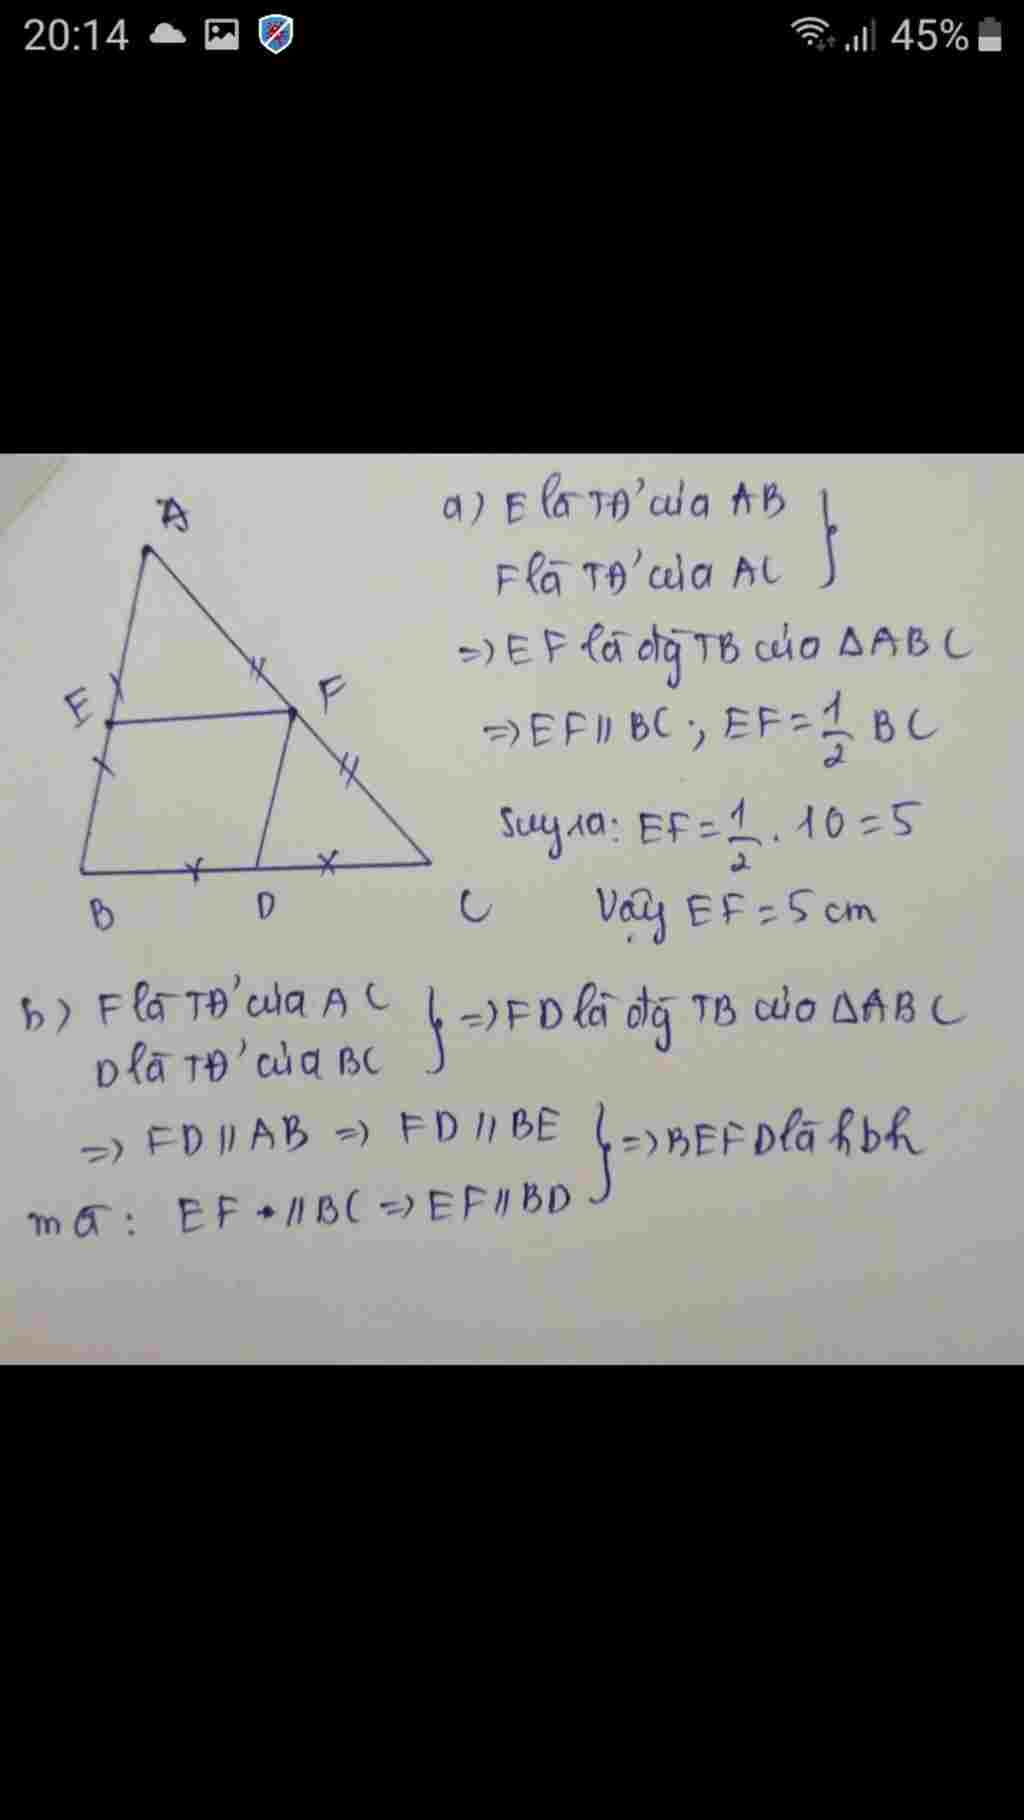 20:14 45%
A
a) E là TĐ' của AB
F là TĐ' của AC
=> EF là đg TB của ΔABC
E F
=> EF // BC ; EF = 1/2 BC
Suy ra: EF = 1/2 . 10 = 5
B D C
Vậy EF = 5 cm
b) F là TĐ' của AC
D là TĐ' của BC
=> FD là đg TB của ΔABC
=> FD // AB => FD // BE
mà: EF // BC => EF // BD
=> BEFD là hbh